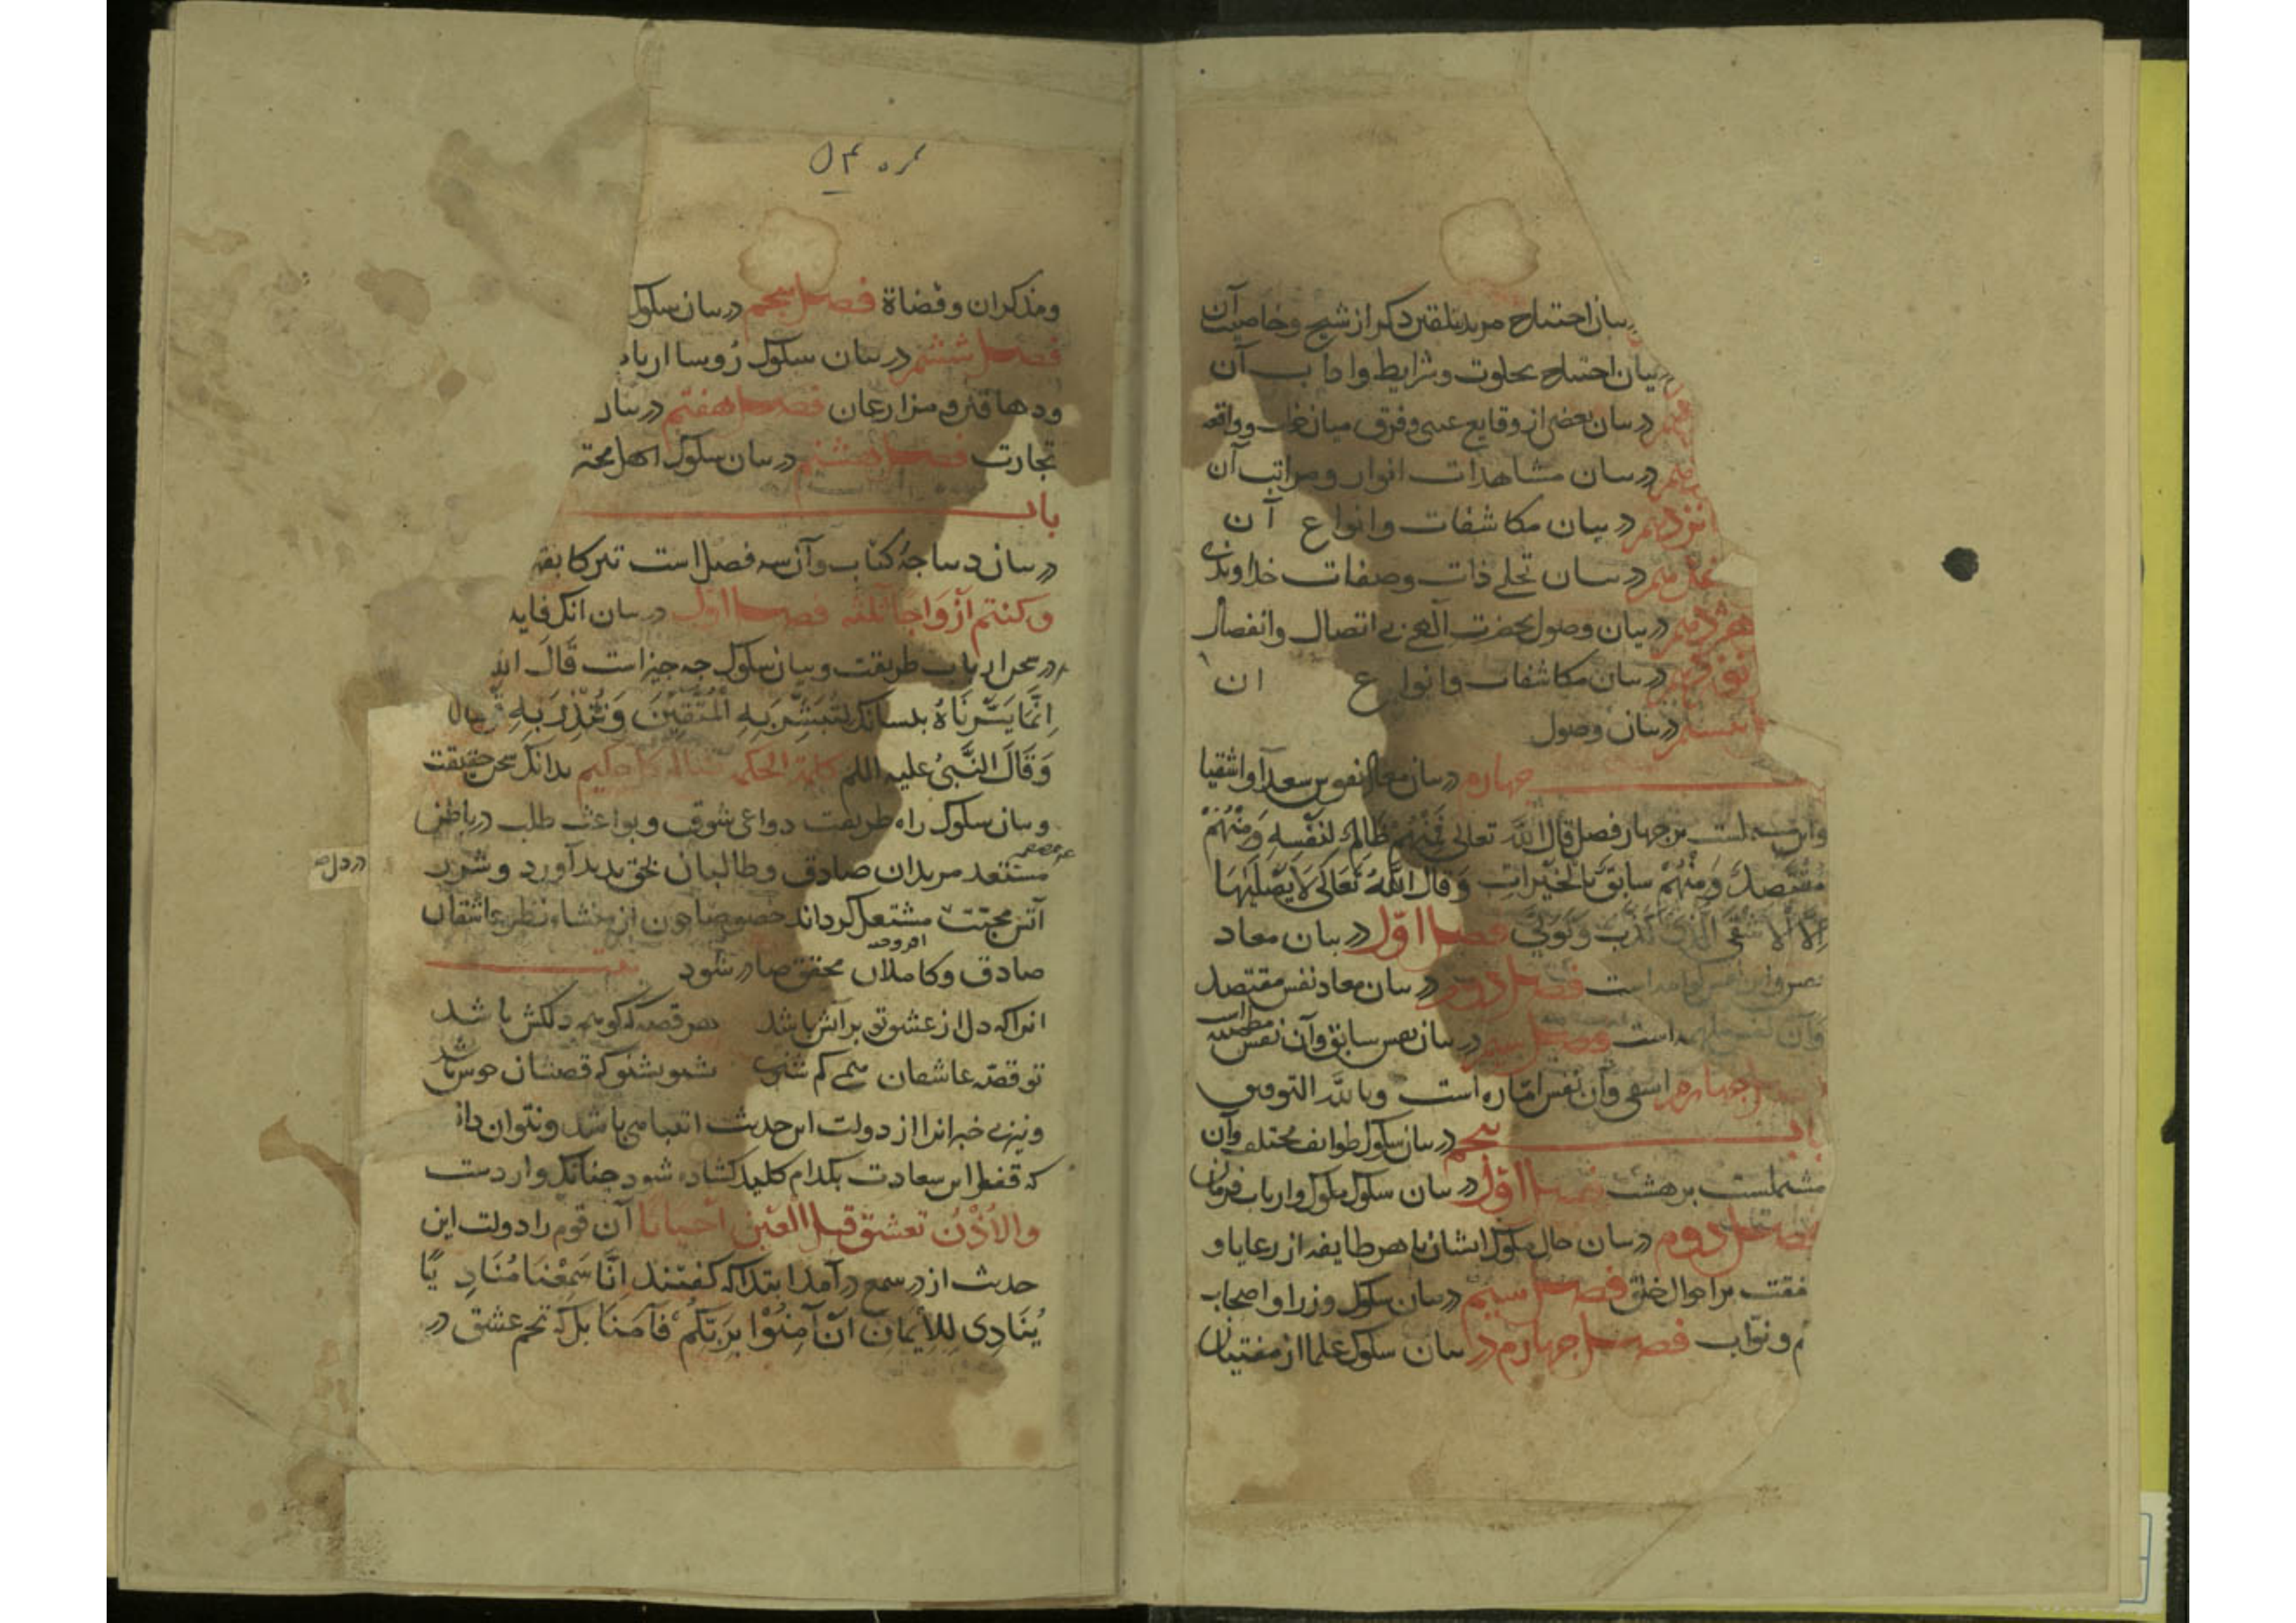 بیان احتیاج مرید بتلقین ذکر از شیخ و خاصیت آن
بیان احتیاج بخلوت و شرایط و اداب آن
در بیان بعضی از وقایع غیبی و فرق میان خواب و واقعه
در بیان مشاهدات انوار و مراتب آن
در بیان مکاشفات و انواع آن
در بیان تجلی ذات و صفات خداوندی
در بیان وصول بحضرت بی اتصال و انفصال
در بیان مکاشفات و انواع ان
در بیان وصول
چهارم در بیان معاد نفوس سعدا و اشقیا
بر چهار فصل قال الله تعالی فَمِنْهُمْ ظَالِمٌ لِنَفْسِهِ وَمِنْهُمْ
مُقْتَصِدٌ وَمِنْهُمْ سابِقٌ بِالْخَیْراتِ وَقَالَ اللّٰهُ تَعَالَی لَا یَصْلَیٰهَا
اِلَّا الْاَشْقَی الَّذی کَذَّبَ وَ تَوَلّی فصل اوّل در بیان معاد
است فصل دوم در بیان معاد نفس مقتصد
وآن است فصل سیم در بیان نفس سابق وآن نفس مطمئنه است
چهارم اشقی وآن نفس امّاره است وبالله التوفیق
باب پنجم در بیان سلوک طوایف مختلف وآن
مشتملست بر هشت فصل اوّل در بیان سلوک ملوک و ارباب فرمان
فصل دوم در بیان حال ملوک ایشان با هر طایفه از رعایا و
شفقت بر احوال خلق فصل سیم در بیان سلوک وزرا و اصحاب
و نوّاب فصل چهارم در بیان سلوک علما از مفتیان
ومذکران وقضاة فصل پنجم در بیان سلوک
فصل ششم در بیان سلوک رُوسا ارباب
ودهاقین و مزارعان فصل هفتم در بیان
تجارت فصل هشتم در بیان سلوک اهل
باب
در بیان دیباجهٔ کتاب وآن سه فصل است تبرکا بقوله
وکنتم اَزْوَاجًا ثلثه فصل اوّل در بیان انک فایده
در سخن ارباب طریقت وبیان سلوک چه چیز است قَالَ الله
اِنَّمَا یَسَّرْنَاهُ بلسانک لِتُبَشِّرَ بِهِ الْمُتَّقِینَ وَتُنْذِرَ بِهِ
وَقَالَ النَّبیُ علیه کلمة الحکمه ضالة کل حکیم بدانک سخن حقیقت
و بیان سلوک راه طریقت دواعی شوق و بواعث طلب در باطن
مستعد مریدان صادق و طالبان بحق پدید آورد و شرر
در دل
آتش محبّت مشتعل گرداند خصوصا چون از منشاء نظر عاشقان
صادق و کاملان محقق صادر شود بیت
انرا که دل از عشق تو پر آتش باشد هر قصه که گوید همه دلکش باشد
تو قصّه عاشقان همی کم شنوی بشنو بشنو که قصشان خوش باشد
و نیز بی خبرانرا از دولت این حدیث انتباهی باشد و بتوان دا
که قفل این سعادت بکدام کلید گشاده شود چنانک وارد ست
والاُذْنُ تعشق قبل العَیْن اَحیانا آن قوم را دولت این
حدیث از در سمع در آمد ابتدا که گفتند اِنَّنَا سَمِعْنَا مُنَادِیًا
یُنَادِی لِلاِیمَانِ اَنْ آمِنُوْا بِرَبِّکُمْ فَآمَنَّا بل که تخم عشق در